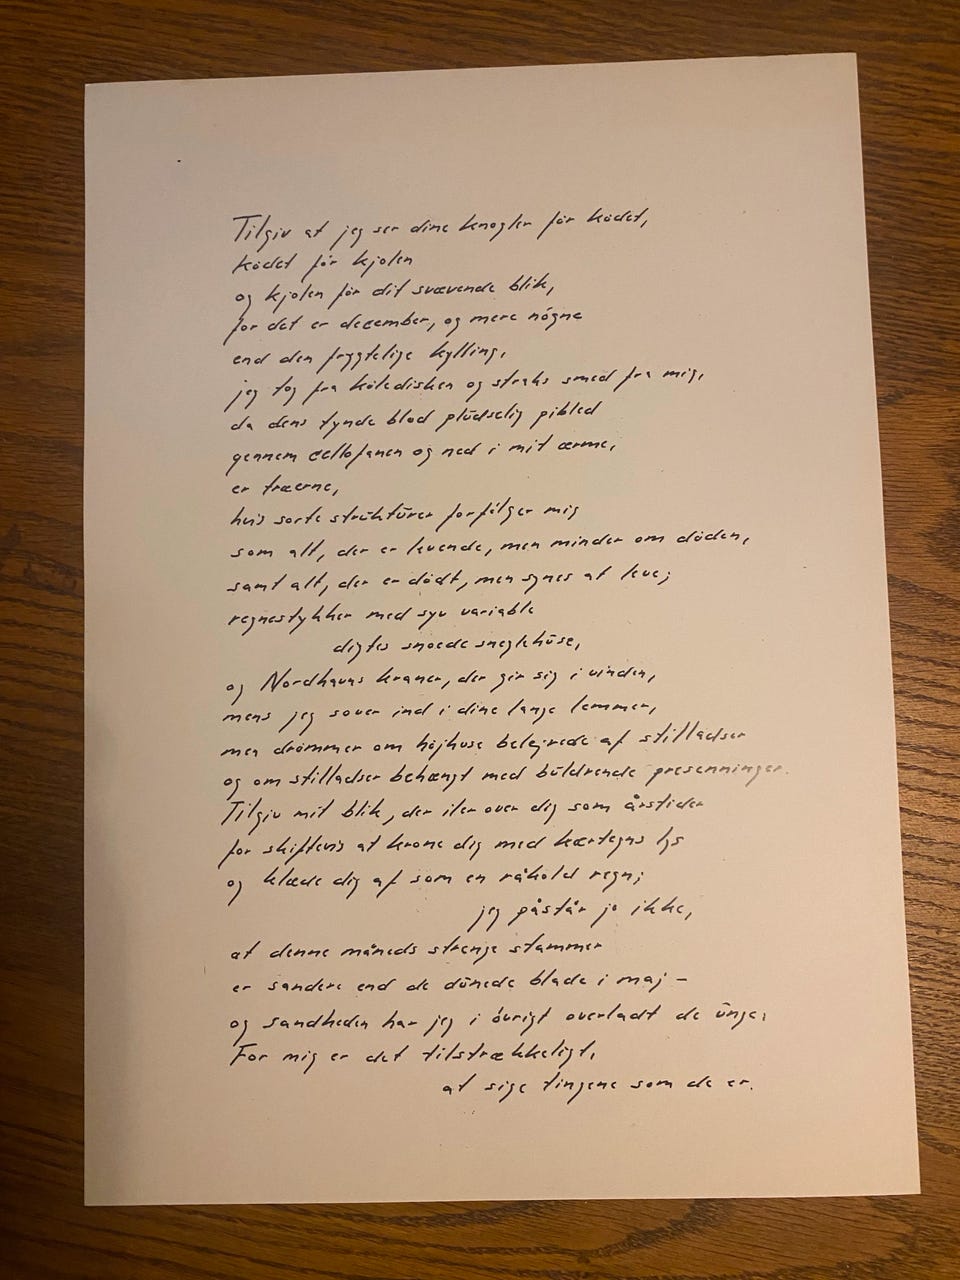 Tilgiv at jeg ser dine knogler før kødet,
kødet før kjolen
og kjolen før dit svævende blik,
for det er december, og mere nøgne
end den frygtelige kylling,
jeg tog fra køledisken og straks smed fra mig,
da dens tynde blod pludselig pibled
gennem cellofanen og ned i mit ærme,
er træerne,
hvis sorte strukturer forfølger mig
som alt, der er levende, men minder om døden,
samt alt, der er dødt, men synes at leve;
regnestykker med syv variable
digtes snoede sneglehuse,
og Nordhavns kraner, der gir sig i vinden,
mens jeg sover ind i dine lange lemmer,
men drømmer om højhuse belejrede af stilladser
og om stilladser behængt med buldrende presenninger.
Tilgiv mit blik, der iler over dig som årstider
for skiftevis at krone dig med kærtegns lys
og klæde dig af som en råkold regn;
jeg påstår jo ikke,
at denne måneds strenge stammer
er sandere end de dunede blade i maj –
og sandheden har jeg i øvrigt overladt de unge.
For mig er det tilstrækkeligt,
at sige tingene som de er.